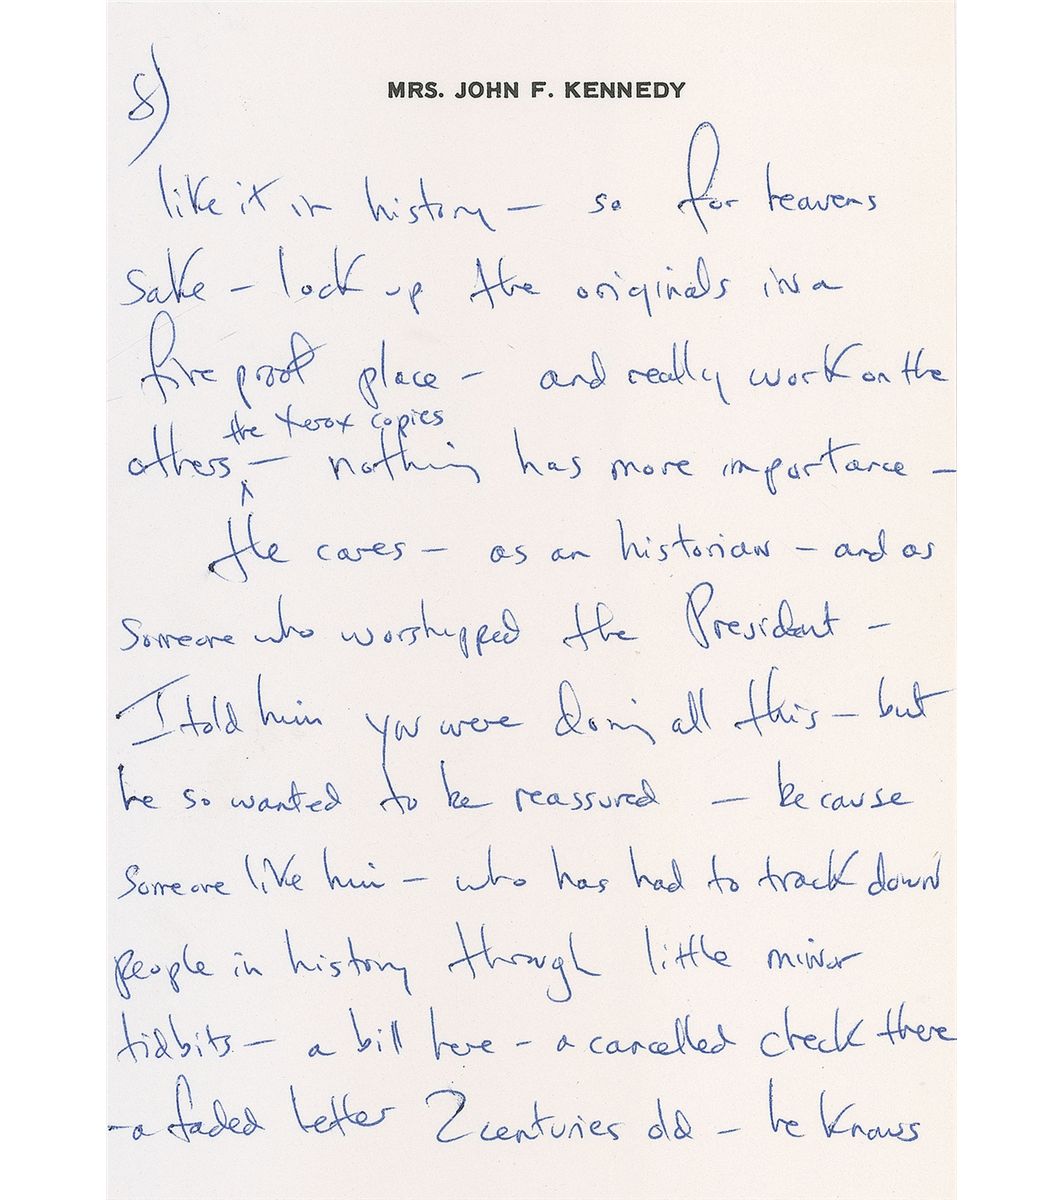 8)
MRS. JOHN F. KENNEDY
like it in history – so for heavens
sake – lock up the originals in a
fire proof place – and really work on the
the Xerox copies
others ^ – nothing has more importance –
He cares – as an historian – and as
someone who worshipped the President –
I told him you were doing all this – but
he so wanted to be reassured – because
someone like him – who has had to track down
people in history through little minor
tidbits – a bill here – a cancelled check there
– a faded letter 2 centuries old – he knows